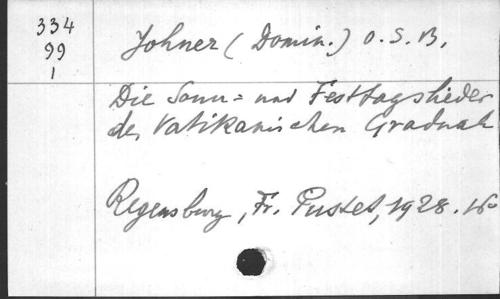 334
99
1
Johner (Domin.) O.S.B.
Die Sonn= und Festtagslieder
des Vatikanischen Graduals
Regensburg, Fr. Pustet, 1928. 16°